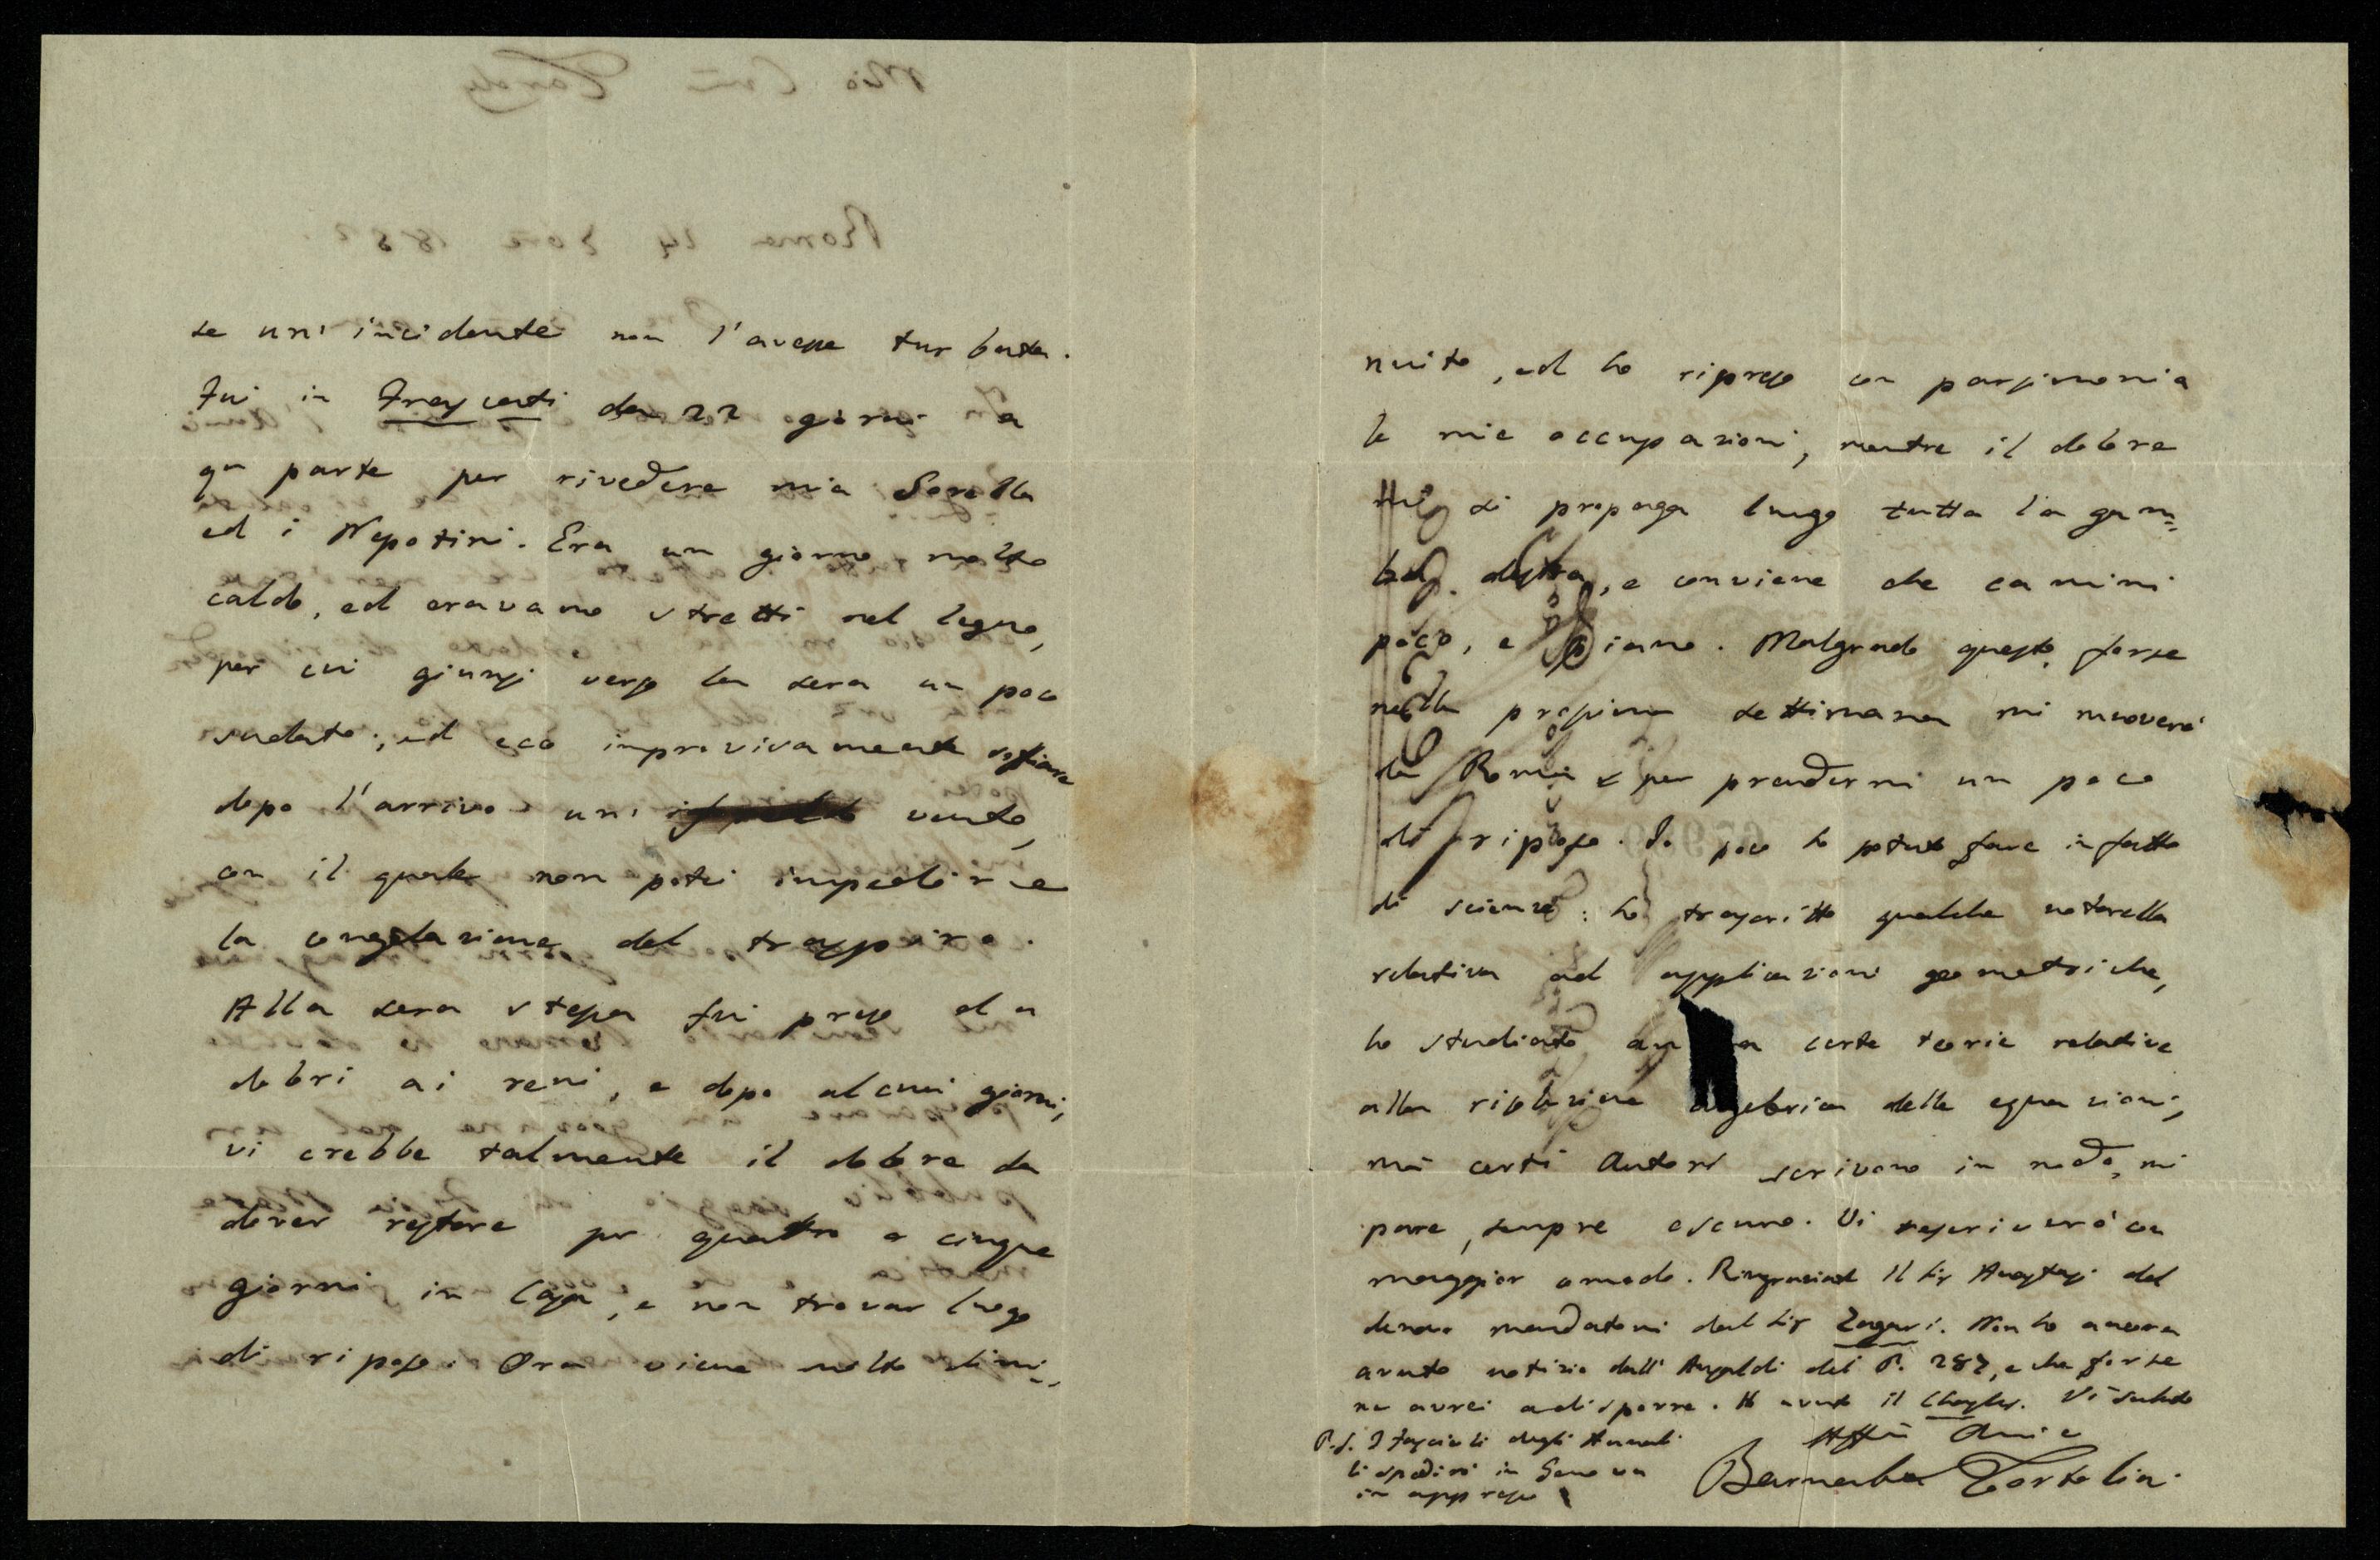 se un' incidente non l'avesse turbata.
Fui in Frascati da 22 giorni a
qa parte per rivedere mia Sorella
ed i Nepotini. Era un giorno molto
caldo, ed eravamo stretti nel legno,
per cui giunsi verso la sera un poco
sudato; ed ecco improvisamente soffiare
dopo l'arrivo un' vento,
con il quale non potei impedire
la congelazione del traspiro.
Alla sera stessa fui preso da
dolori ai reni, e dopo alcuni giorni,
vi crebbe talmente il dolore da
dover restare per quattro o cinque
giorni in Casa, e non trovar luogo
di riposo. Ora viene molto dimi=
nuito, ed ho ripreso con parsimonia
le mie occupazioni, mentre il dolore
si propaga lungo tutta la gam=
ba destra, e conviene che camini
poco, e piano. Malgrado questo, forse
nella prossima settimana mi muoverò
da Roma per prendermi un poco
di riposo. Io poco ho potuto fare in fatto
di scienze: ho trascritto qualche notarella
relativa ad applicazioni geometriche,
ho studiato an a certe teorie relative
alla risoluzione algebrica delle equazioni,
ma certi Autori scrivono in modo, mi
pare, sempre oscuro. Vi riscriverò con
maggior comodo. Ringraziate il Sig
denaro mandatomi dal Sig Zagari. Non ho ancora
avuto notizia dall' del P. 287, e che forse
ne avrei a disporre. Ho avuto il Chasles. Vi saluto
Affmo Amico
Barnaba Tortolini
P.S. I fascicoli degli Annali
li spedirò in Genova
in appresso
Mio Caro Tardy
Roma 24 1852